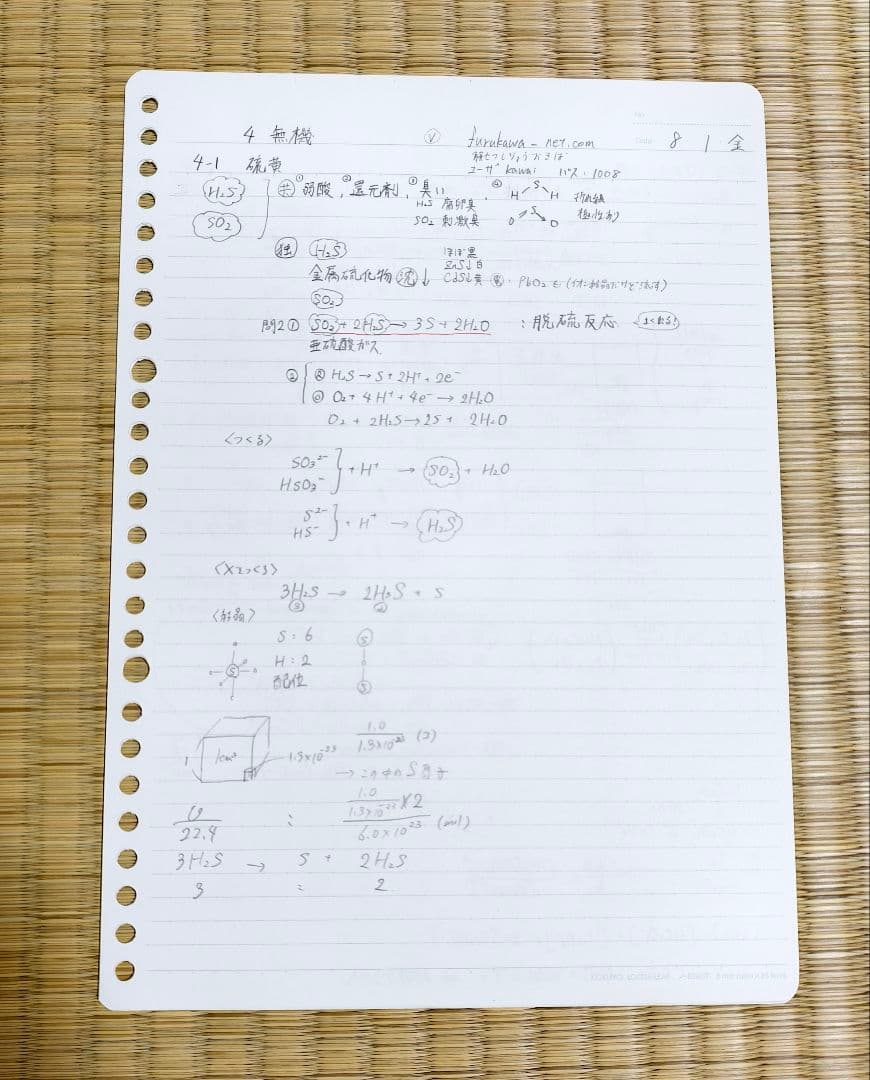 4 無機
furukawa-net.com
8 1 金
4-1 硫黄
ユーザ kawai パス・1008
H₂S
SO₂
共 ①弱酸, ②還元剤, ③臭い
H₂S 腐卵臭
SO₂ 刺激臭
④ H S H
O S O
折れ線
極性
独 H₂S
金属硫化物 沈↓
ほぼ黒
ZnS↓白
CdS↓黄
PbO₂
SO₂
問2① SO₂ + 2H₂S → 3S + 2H₂O : 脱硫反応 よくでる!
亜硫酸ガス
② H₂S → S + 2H⁺ + 2e⁻
O₂ + 4H⁺ + 4e⁻ → 2H₂O
O₂ + 2H₂S → 2S + 2H₂O
<つくる>
SO₃²⁻
HSO₃⁻ } + H⁺ → SO₂ + H₂O
S²⁻
HS⁻ } + H⁺ → H₂S
<Xをつくる>
3H₂S → 2H₃S + S
③ ②
<結晶>
S : 6
H : 2
配位
S
S
1 1cm³ 1.3×10⁻²³
1.0/1.3×10⁻²³ (コ)
→ この中のS原子
V/22.4 : (1.0/1.3×10⁻²³ × 2)/6.0×10²³ (mol)
3H₂S → S + 2H₃S
3 : 2